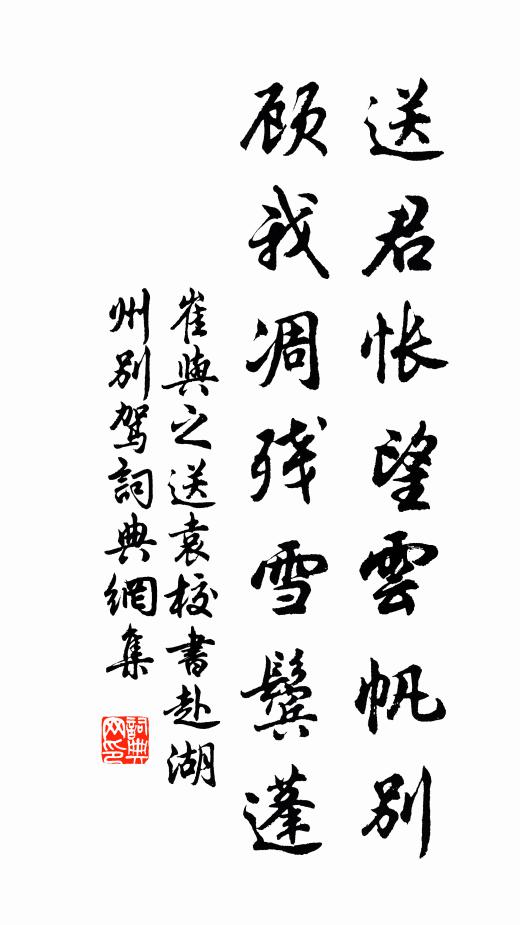 送君怅望雲帆别
顾我凋残雪鬓蓬
崔與之送袁校書赴湖
州别驾詞典網集
詞典
网印